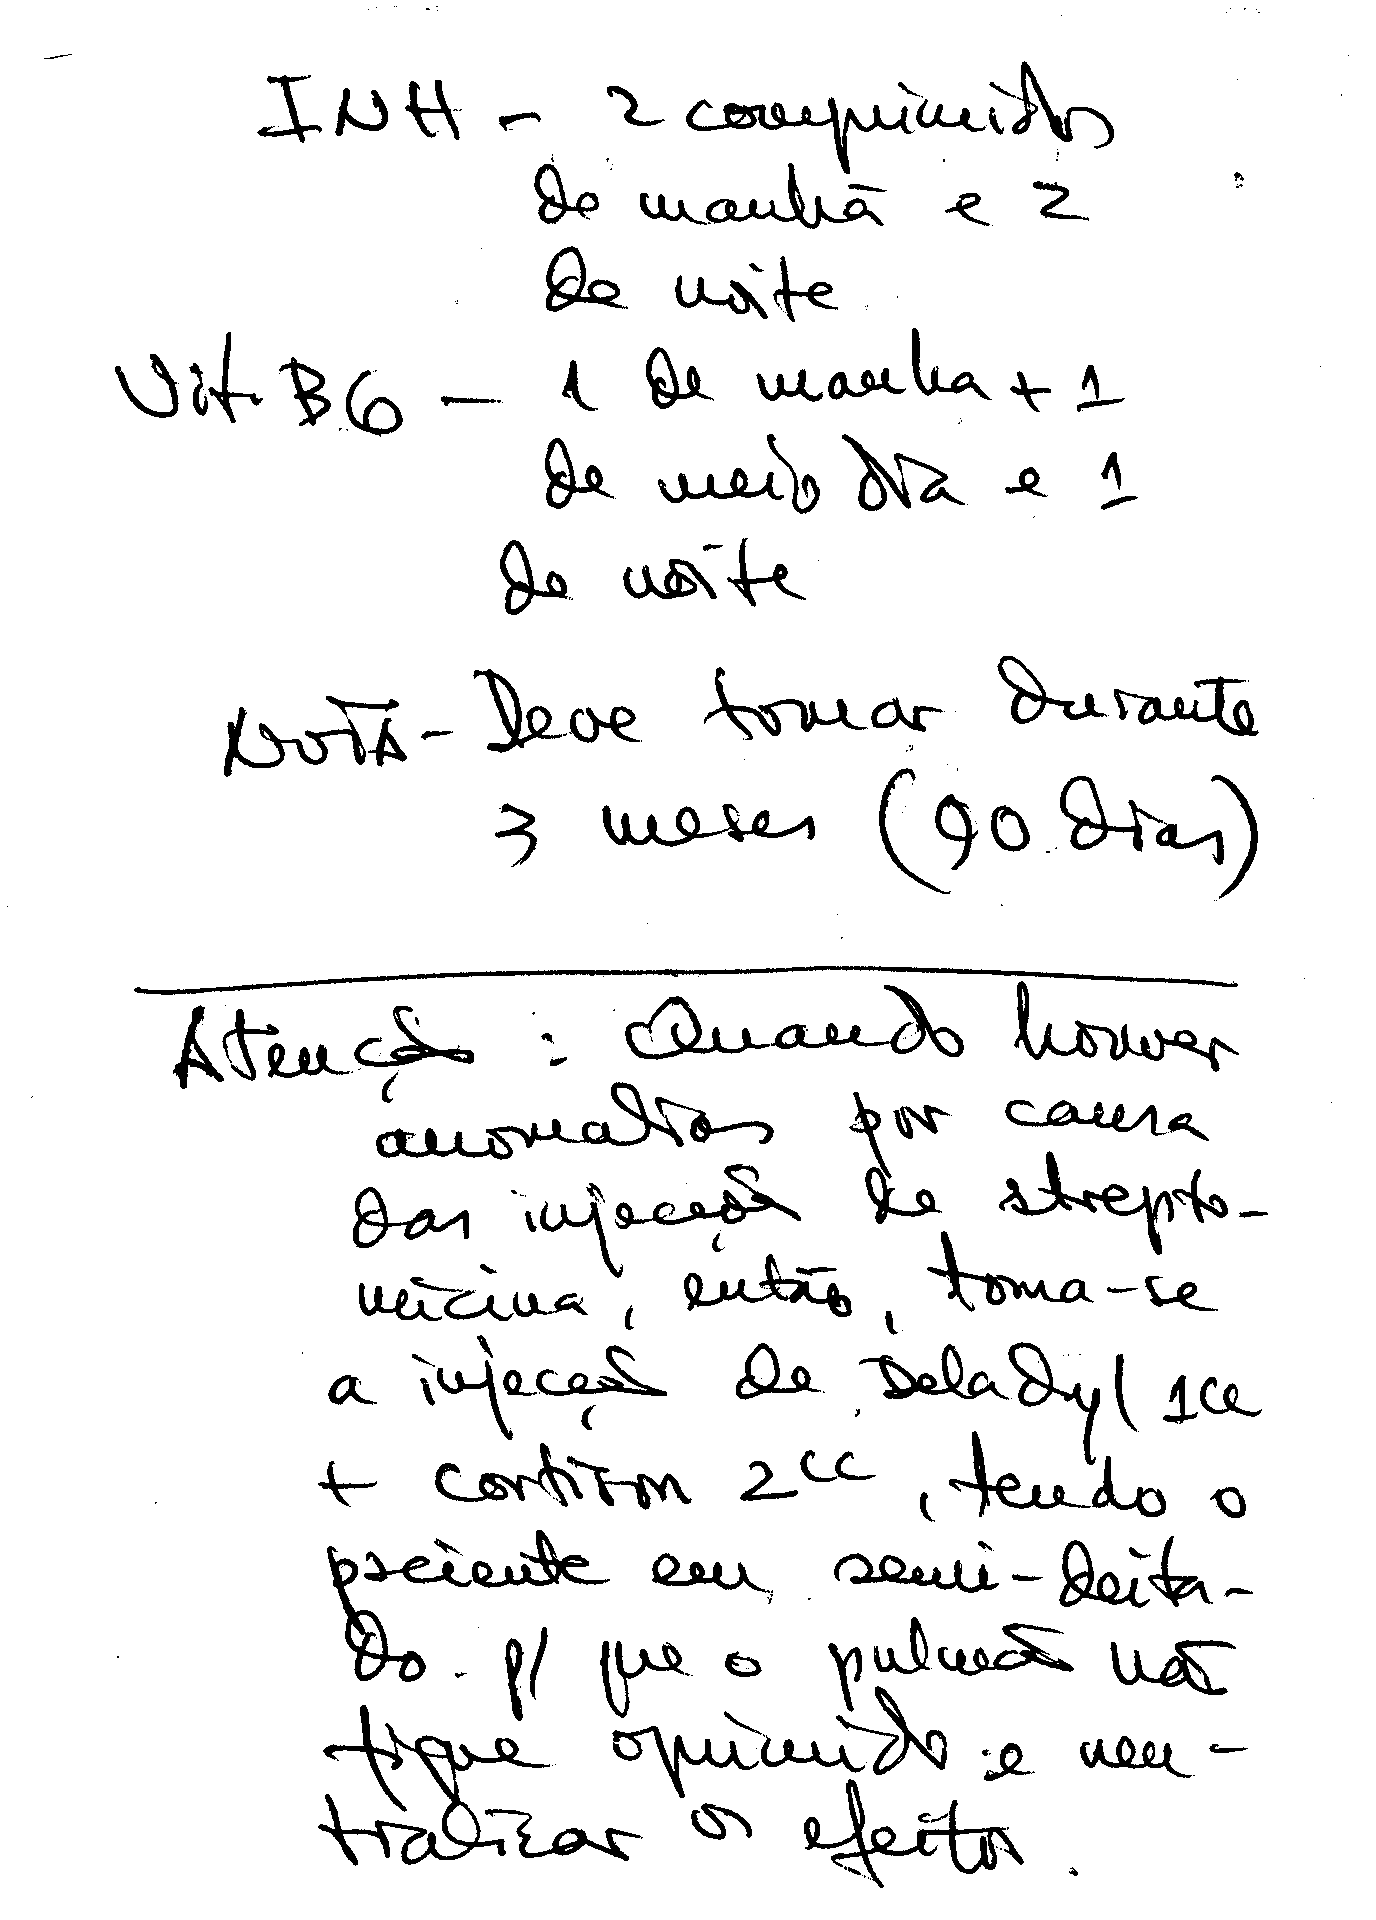 INH - 2 comprimidos
de manhã e 2
de noite
Vit. B6 - 1 de manha + 1
de meio dia e 1
de noite
NOTA - Deve tomar durante
3 meses (90 dias)
Atenção : Quando houver
anomalias por causa
das injeção de strepto-
micina, então, toma-se
a injeção de Deladyl 1cc
+ cortizon 2cc, tendo o
paciente em semi-deita-
do p/ que o pulmão não
fique oprimido e neu-
tralizar os efeitos.